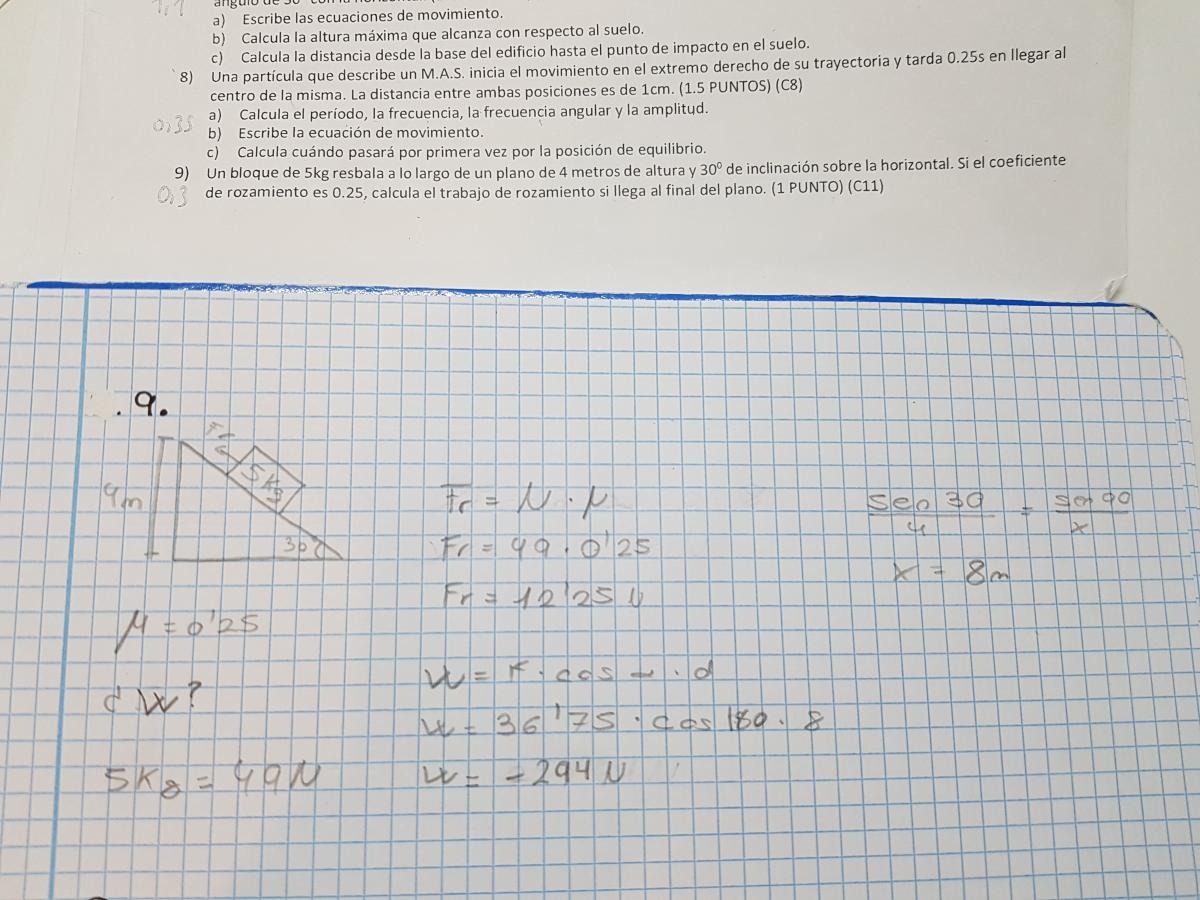 1,1
ángulo de 30º con la horizontal.
a) Escribe las ecuaciones de movimiento.
b) Calcula la altura máxima que alcanza con respecto al suelo.
c) Calcula la distancia desde la base del edificio hasta el punto de impacto en el suelo.
8) Una partícula que describe un M.A.S. inicia el movimiento en el extremo derecho de su trayectoria y tarda 0.25s en llegar al
centro de la misma. La distancia entre ambas posiciones es de 1cm. (1.5 PUNTOS) (C8)
a) Calcula el período, la frecuencia, la frecuencia angular y la amplitud.
0,35
b) Escribe la ecuación de movimiento.
c) Calcula cuándo pasará por primera vez por la posición de equilibrio.
9) Un bloque de 5kg resbala a lo largo de un plano de 4 metros de altura y 30º de inclinación sobre la horizontal. Si el coeficiente
0,3
de rozamiento es 0.25, calcula el trabajo de rozamiento si llega al final del plano. (1 PUNTO) (C11)
. 9.
Fr
5kg
4m
30º
μ = 0'25
¿W?
5Kg = 49N
Fr = N · μ
Fr = 49 · 0'25
Fr = 12'25 N
W = F · cos · d
W = 36'75 · cos 180 · 8
W = -294 N
sen 30 / 4 = sen 90 / x
x = 8m